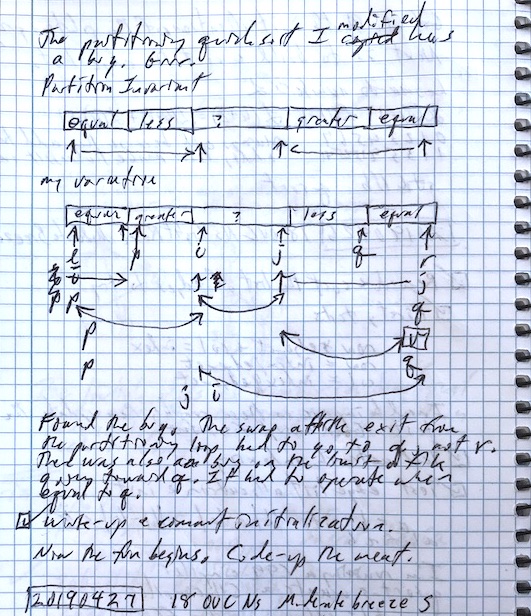 The partitioning quicksort I modified copied has
a bug. Grrr.
Partition Invariant
equal less ? greater equal
my variation
equal greater ? less equal
l p i j q r
i j
p p q
p v
p q
j i
Found the bug. The swap after the exit from
the partitioning loop had to go to q, not r.
There was also a bug on the limit of the
going toward q. It had to operate when
equal to q.
Write-up e comant initialization.
Now the fun begins. Code-up the meat.
20190427 18 OVC NS Moderate breeze S